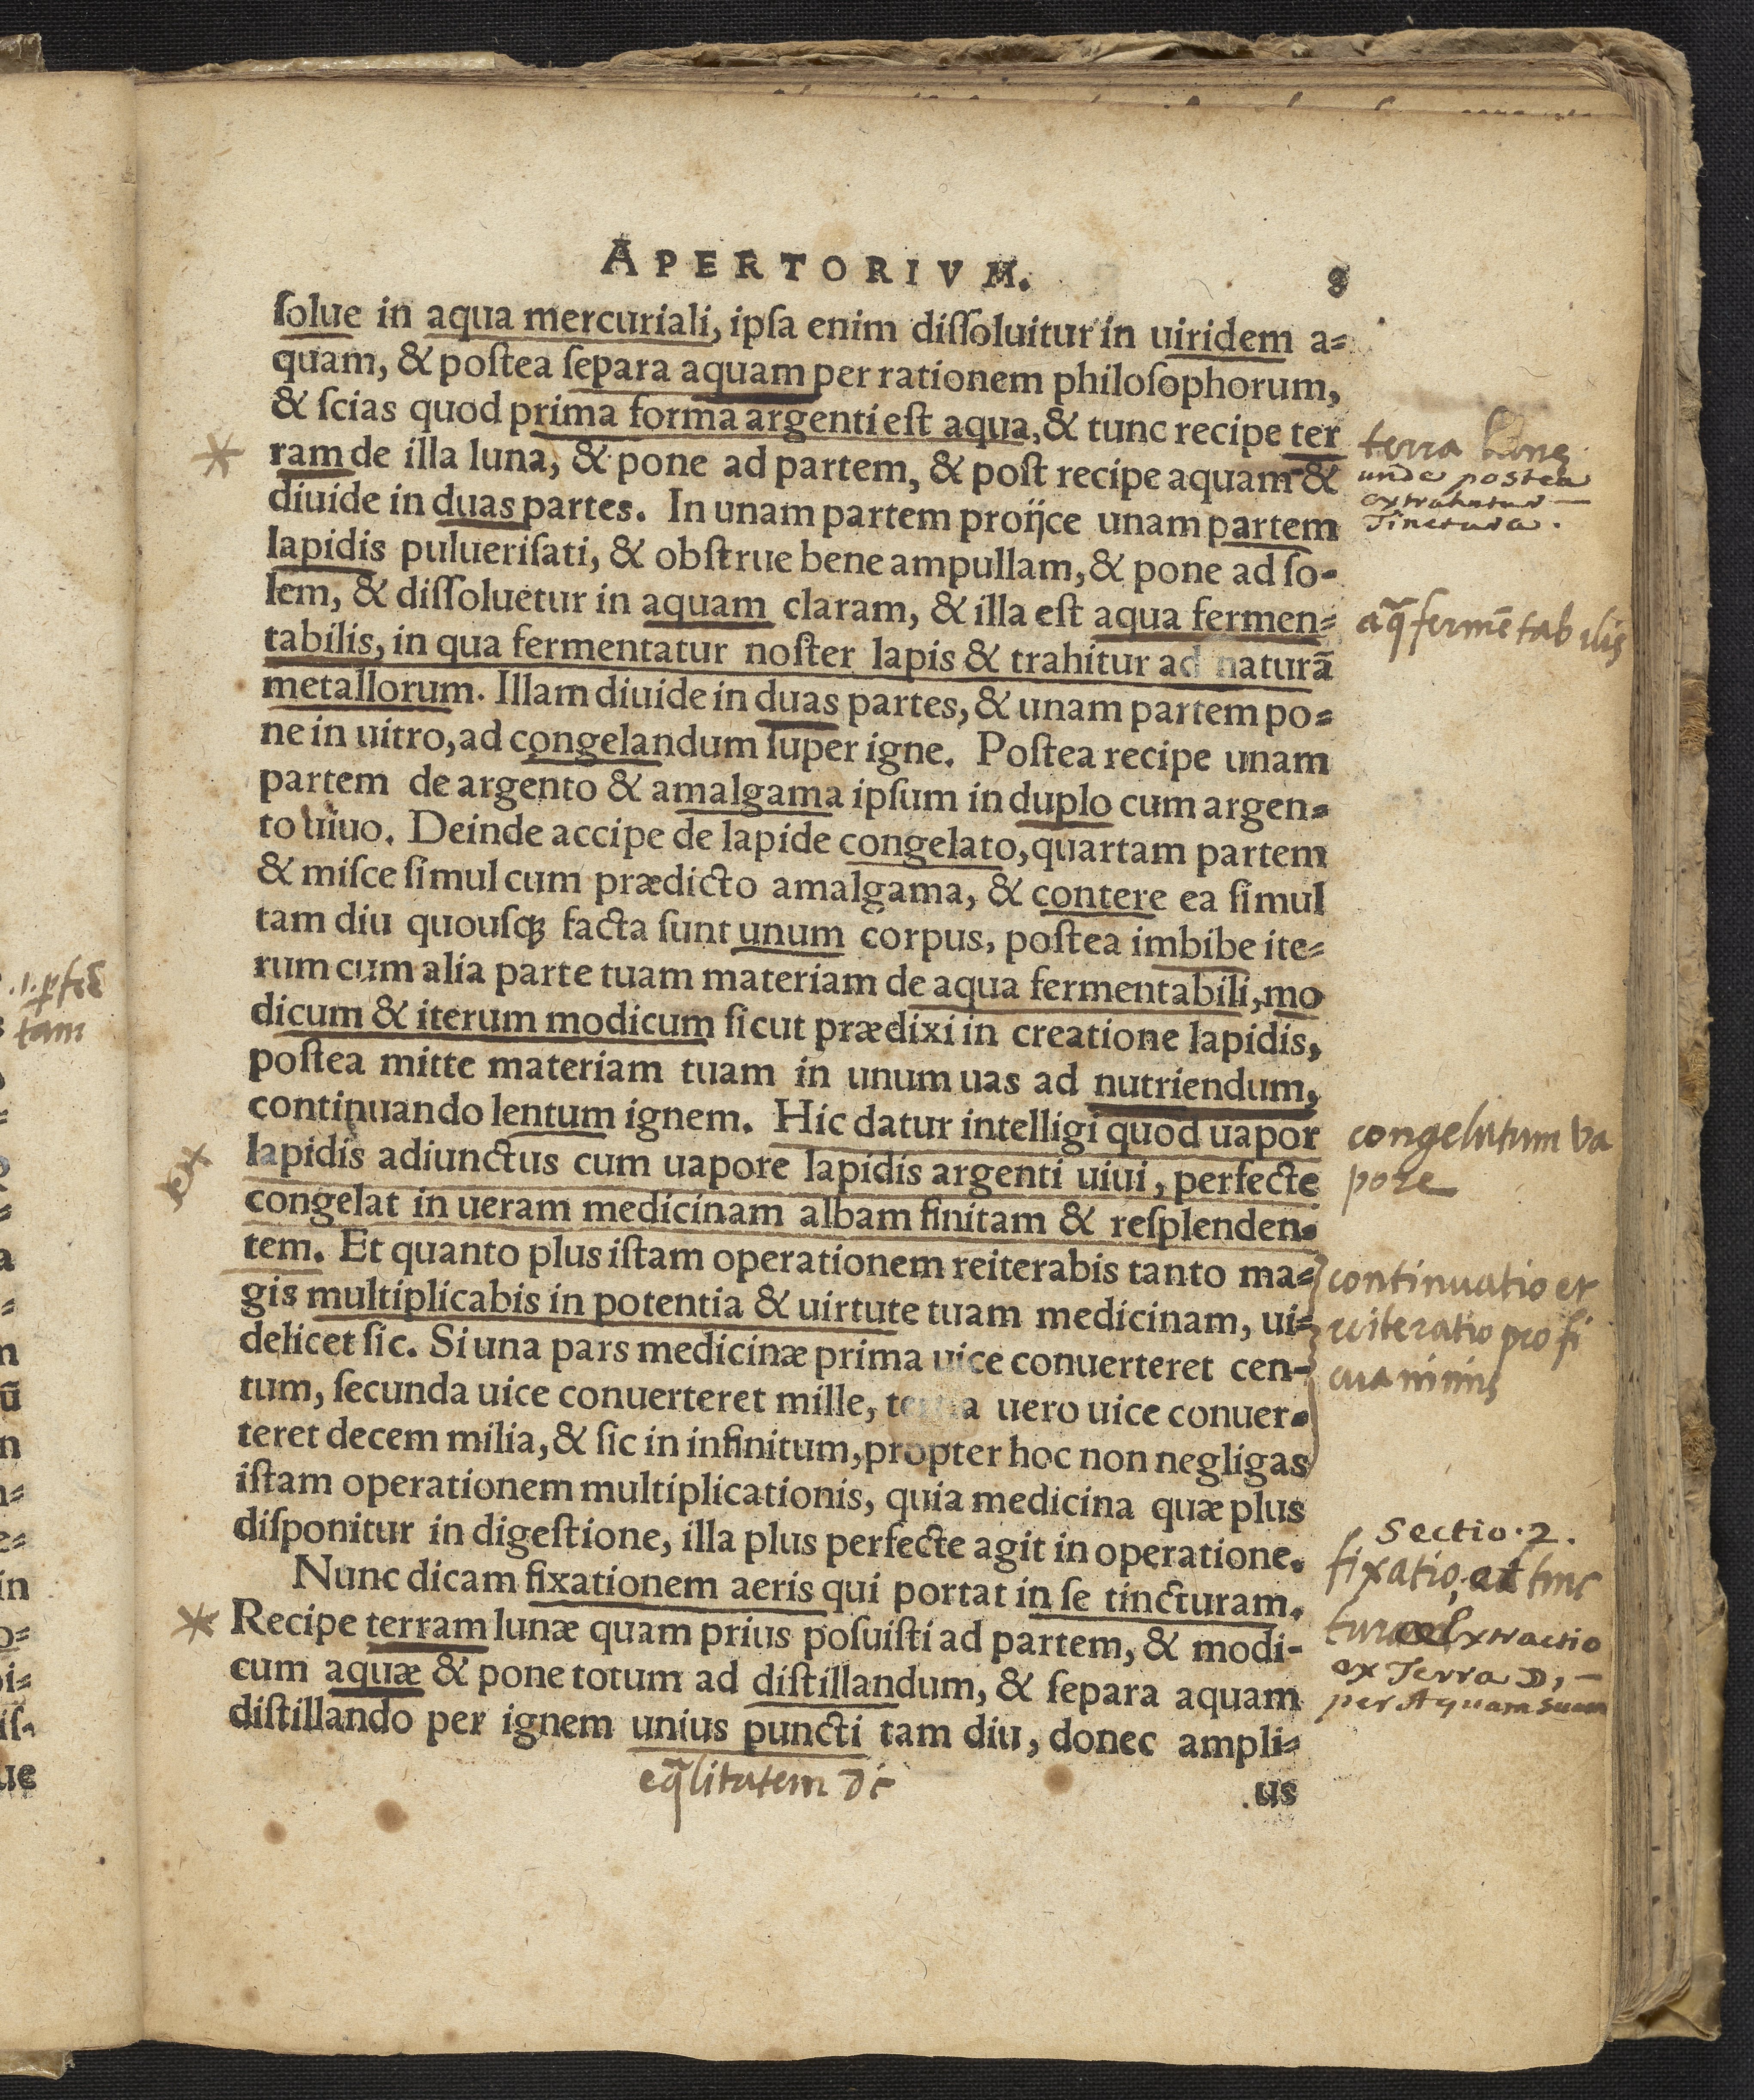 APERTORIVM. 9
ſolue in aqua mercuriali, ipſa enim diſſoluitur in uiridem a=
quam, & poſtea ſepara aquam per rationem philoſophorum,
& ſcias quod prima forma argenti eſt aqua, & tunc recipe ter
ram de illa luna, & pone ad partem, & poſt recipe aquam &
diuide in duas partes. In unam partem proijce unam partem
lapidis pulueriſati, & obſtrue bene ampullam, & pone ad ſo-
lem, & diſſoluetur in aquam claram, & illa eſt aqua fermen=
tabilis, in qua fermentatur noſter lapis & trahitur ad naturā
metallorum. Illam diuide in duas partes, & unam partem po=
ne in uitro, ad congelandum ſuper igne. Poſtea recipe unam
partem de argento & amalgama ipſum in duplo cum argen=
to uiuo. Deinde accipe de lapide congelato, quartam partem
& miſce ſimul cum prædicto amalgama, & contere ea ſimul
tam diu quouſqꝫ facta ſunt unum corpus, poſtea imbibe ite=
rum cum alia parte tuam materiam de aqua fermentabili, mo
dicum & iterum modicum ſicut prædixi in creatione lapidis,
poſtea mitte materiam tuam in unum uas ad nutriendum,
continuando lentum ignem. Hic datur intelligi quod uapor
lapidis adiunctus cum uapore lapidis argenti uiui, perfecte
congelat in ueram medicinam albam finitam & reſplenden=
tem. Et quanto plus iſtam operationem reiterabis tanto ma=
gis multiplicabis in potentia & uirtute tuam medicinam, ui=
delicet ſic. Si una pars medicinæ prima uice conuerteret cen-
tum, ſecunda uice conuerteret mille, tertia uero uice conuer=
teret decem milia, & ſic in infinitum, propter hoc non negligas
iſtam operationem multiplicationis, quia medicina quæ plus
diſponitur in digeſtione, illa plus perfecte agit in operatione.
Nunc dicam fixationem aeris qui portat in ſe tincturam.
Recipe terram lunæ quam prius poſuiſti ad partem, & modi-
cum aquæ & pone totum ad diſtillandum, & ſepara aquam
diſtillando per ignem unius puncti tam diu, donec ampli=
us
terra
unde postea
extrahatur
Tinctura.
aq̄ fermētabilis
congelatum va
pore
continuatio et
reiteratio profi
cua nimis
Sectio. 2.
fixatio, et tinc
turae Extractio
ex Terra ☽,
per Aquam suam
eq̄litatem
tam